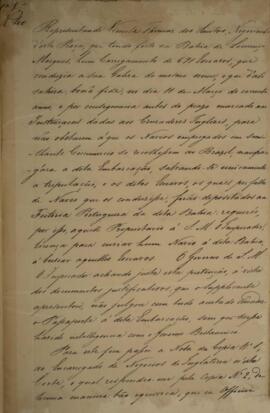 Representando Vicente Thomas dos Santos, Negociante
desta Praça, que tendo feito na Bahia de Lourenço
Marques, hum Carregamento de 691 Escravos, que
conduzia a sua Galera do mesmo nome, a qual d'ali
sahira, bona fide, no dia 10 de Março do corrente
anno, e por conseguinte antes do prazo marcado nas
Instrucçoens dadas aos Cruzadores Inglezes, para
não obstarem a que os Navios empregados em sem-
elhante Commercio se recolhessem ao Brazil, naufra-
gára a dita Embarcação, salvando-se unicamente
a tripulação, e os ditos Escravos, os quaes por falta
de Navio que os conduzisse, forão depositados na
Feitoria Portugueza da dita Bahia: requereo,
por isso, aquelle Proprietario a S. M. o Imperador,
licença para enviar hum Navio á dita Bahia,
á buscar aquelles Escravos. O Governo de S. M.
o Imperador achando justa esta pretenção, á vista
dos documentos justificativos, que o Supplicante
apresentou, não julgou com tudo
o Passaporte á dita Embarcação, sem que des-
se intelligencia com o Governo Britannico.
Para este fim passou a Nota da Copia Nº 1,
ao Encarregado de Negocios de Inglaterra n'esta
Corte, o qual respondeu-me pela Copia Nº 2, de
huma maneira tão equivoca, que o